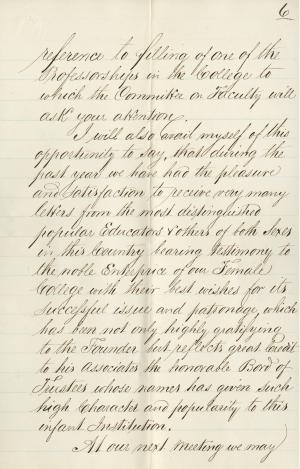 6
reference to filling of one of the
Professorships in the College to
which the Committee on Faculty will
ask your attention.
I will also avail myself of this
opportunity to say, that during the
past year we have had the pleasure
and satisfaction to receive very many
letters from the most distinguished
popular Educators & others of both Sexes
in this Country bearing testimony to
the noble Enterprice of our Female
College with their best wishes for its
successful issue and patronage, which
has been not only highly gratifying
to the Founder but reflects great Credit
to his associates the honorable Bord of
Trustees whose names has given such
high Character and popularity to this
infant Institution.
At our next meeting we may